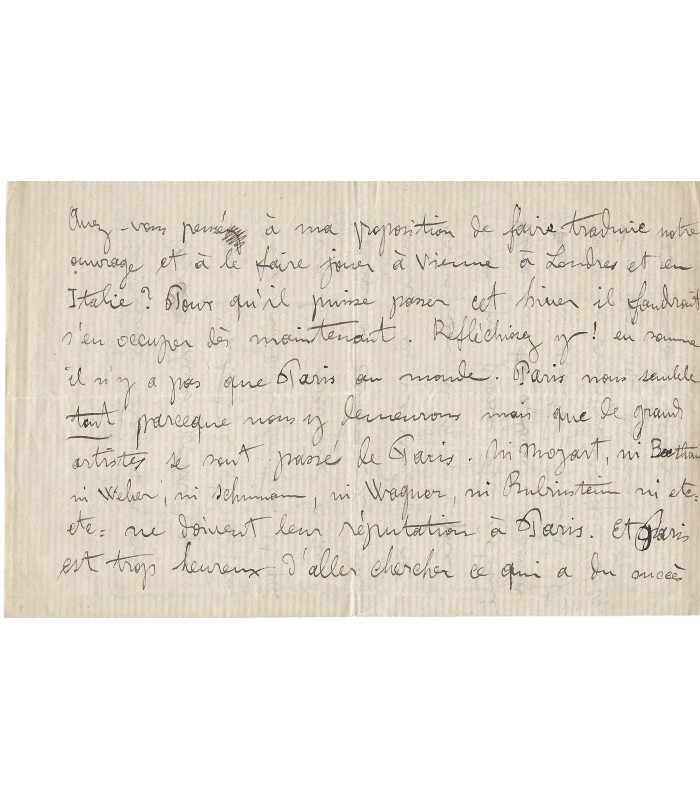 Avez-vous pensé à ma proposition de faire traduire notre
ouvrage et à le faire jouer à Vienne à Londres et en
Italie? Pour qu'il puisse passer cet hiver il faudrait
s'en occuper dès maintenant. Réfléchissez y! en somme
il n'y a pas que Paris au monde. Paris nous semble
tout parceque nous y demeurons mais que de grands
artistes se sont passé de Paris. Ni Mozart, ni Beethoven
ni Weber, ni Schumann, ni Wagner, ni Rubinstein ni etc=
etc= ne doivent leur réputation à Paris. Et Paris
est trop heureux d'aller chercher ce qui a du succès